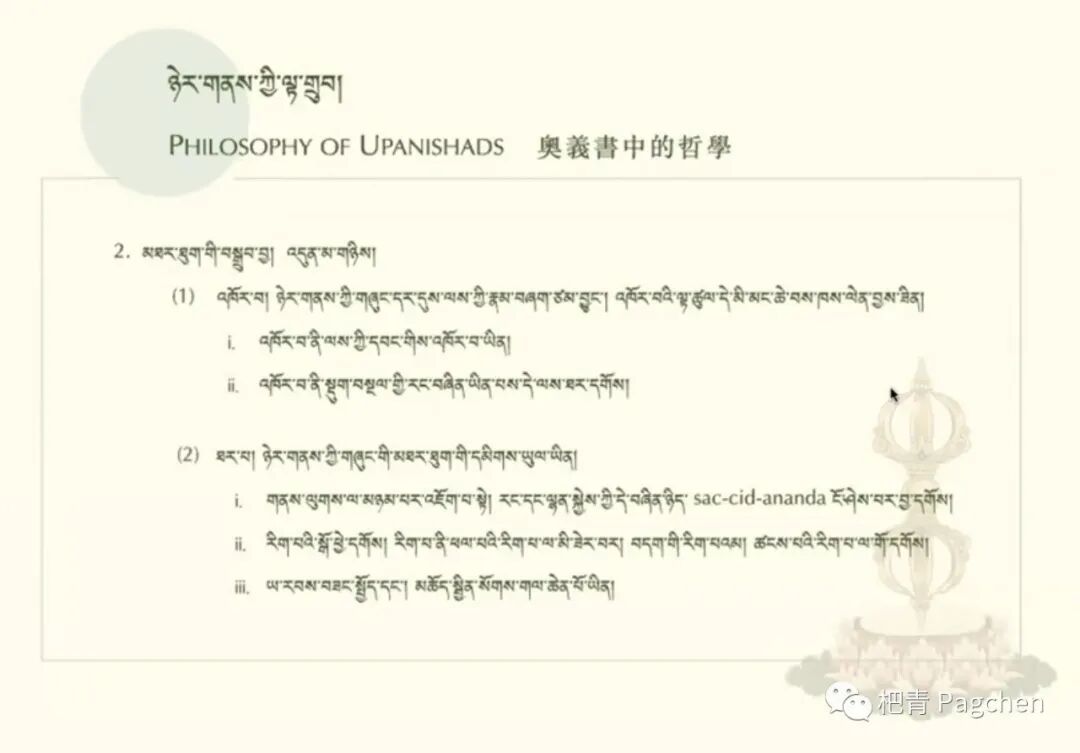 ཉེར་གནས་ཀྱི་ལྟ་གྲུབ།
PHILOSOPHY OF UPANISHADS 奧義書中的哲學
2. མཐར་ཐུག་གི་བསྒྲུབ་བྱ། འདུན་མ་གཉིས།
(1) འཁོར་བ། ཉེར་གནས་ཀྱི་གཞུང་དར་དུས་ལས་ཀྱི་རྣམ་བཞག་ཙམ་བྱུང་། འཁོར་བའི་ལྟ་ཚུལ་དེ་མི་མང་ཆེ་བས་ཁས་ལེན་བྱས་ཟིན།
i. འཁོར་བ་ནི་ལས་ཀྱི་དབང་གིས་འཁོར་བ་ཡིན།
ii. འཁོར་བ་ནི་སྡུག་བསྔལ་གྱི་རང་བཞིན་ཡིན་པས་དེ་ལས་ཐར་དགོས།
(2) ཐར་པ། ཉེར་གནས་ཀྱི་གཞུང་གི་མཐར་ཐུག་གི་དམིགས་ཡུལ་ཡིན།
i. གནས་ལུགས་ལ་མཉམ་པར་འཇོག་པ་སྟེ། རང་དང་ལྷན་སྐྱེས་ཀྱི་དེ་བཞིན་ཉིད་ sac-cid-ananda ངོ་ཤེས་པར་བྱ་དགོས།
ii. རིག་པའི་སྒོ་ཕྱེ་དགོས། རིག་པ་ནི་ཕལ་པའི་རིག་པ་ལ་མི་ཟེར་བར། བདག་གི་རིག་པའམ། ཚངས་པའི་རིག་པ་ལ་གོ་དགོས།
iii. ཡ་རབས་བཟང་སྤྱོད་དང་། མཆོད་སྦྱིན་སོགས་གལ་ཆེན་པོ་ཡིན།
杷青 Pagchen